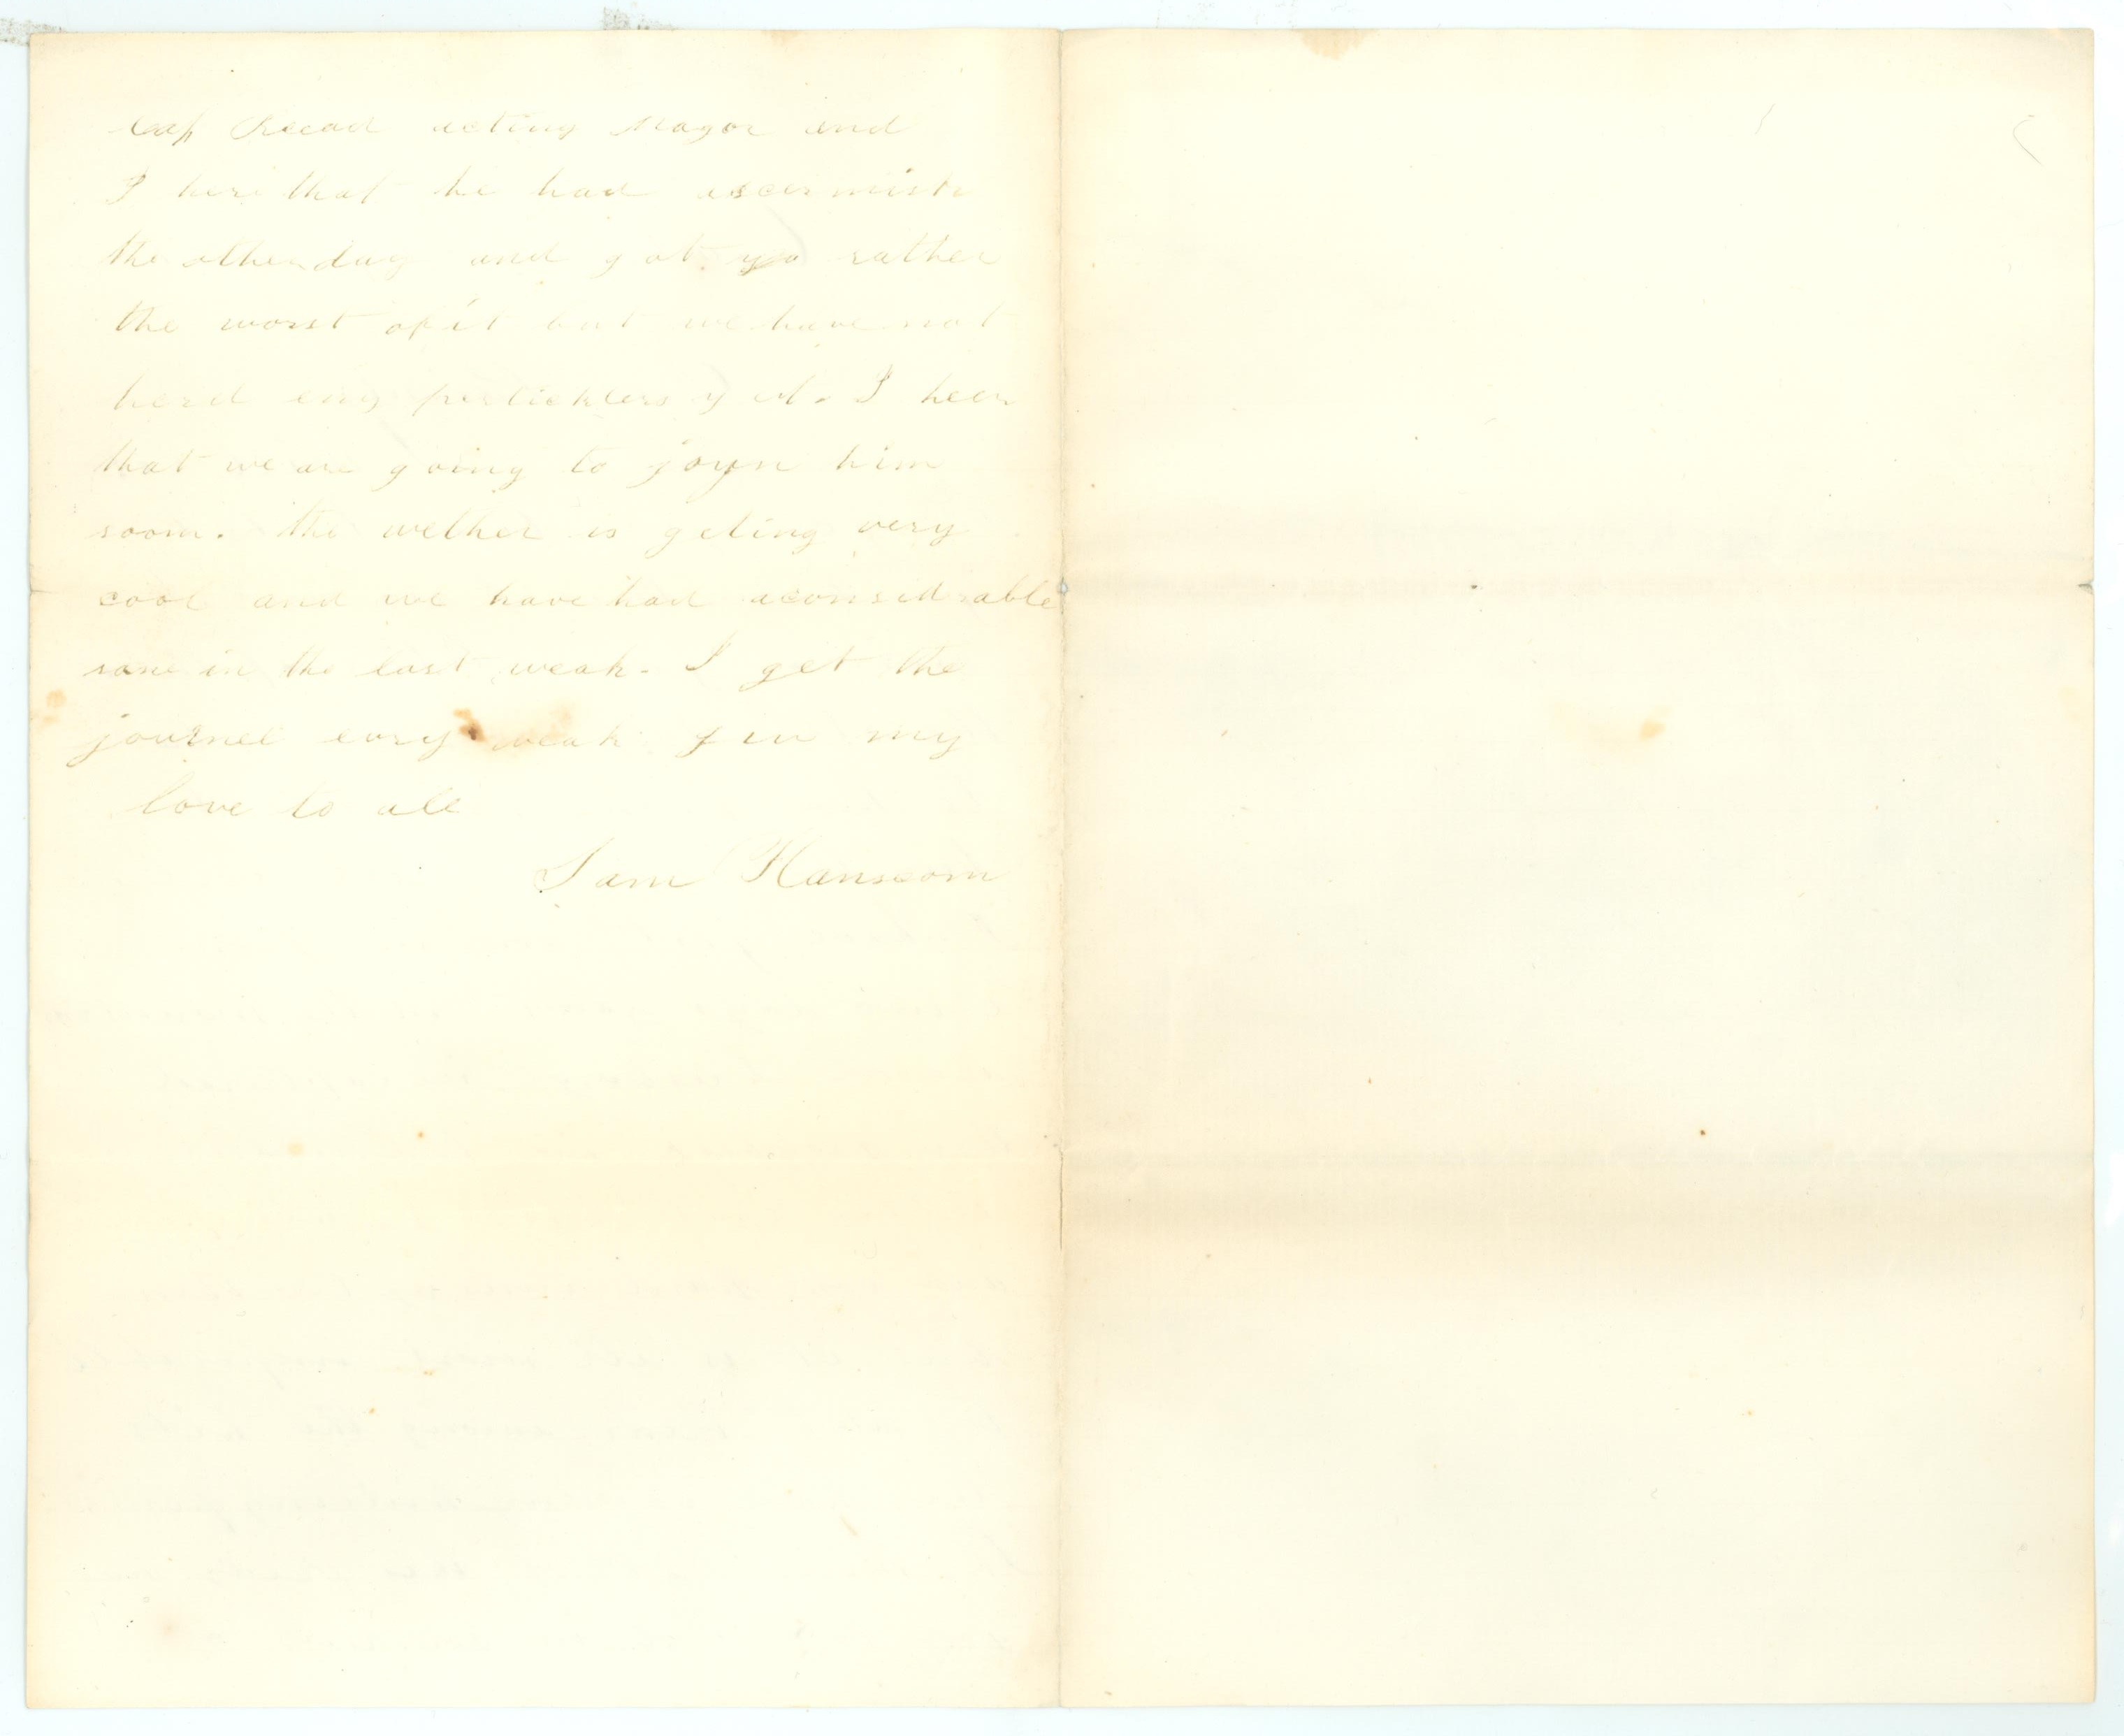 Cap Reead acting Magor and
I here that he had a scermish
the other day and got rather
the worst of it but we have not
herd eny perticklers yet. I heer
that we are going to joyn him
soom. the wether is geting very
cool and we have had aconsidrable
rane in the last weak. I get the
journel evry weak giv my
love to all
Sam Hanscom